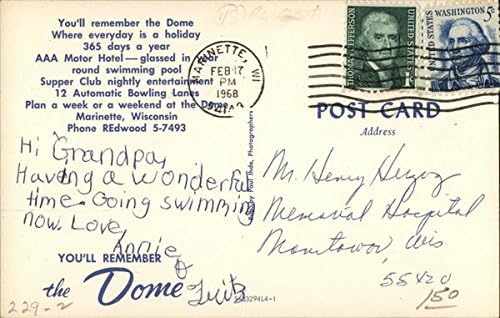 You'll remember the Dome
Where everyday is a holiday
365 days a year
AAA Motor Hotel — glassed in year
round swimming pool
Supper Club nightly entertainment
12 Automatic Bowling Lanes
Plan a week or a weekend at the Dome
Marinette, Wisconsin
Phone REdwood 5-7493
MARINETTE, WI
FEB 17
PM
1968
THOMAS JEFFERSON
UNITED STATES
UNITED STATES
WASHINGTON 5c
POST CARD
Address
Hi Grandpa,
Having a wonderful
time. Going swimming
now. Love,
Annie
&
YOU'LL REMEMBER
the Dome
Mr. Henry Herzog
Memorial Hospital
Manitowoc, Wis.
55420
150
229-2